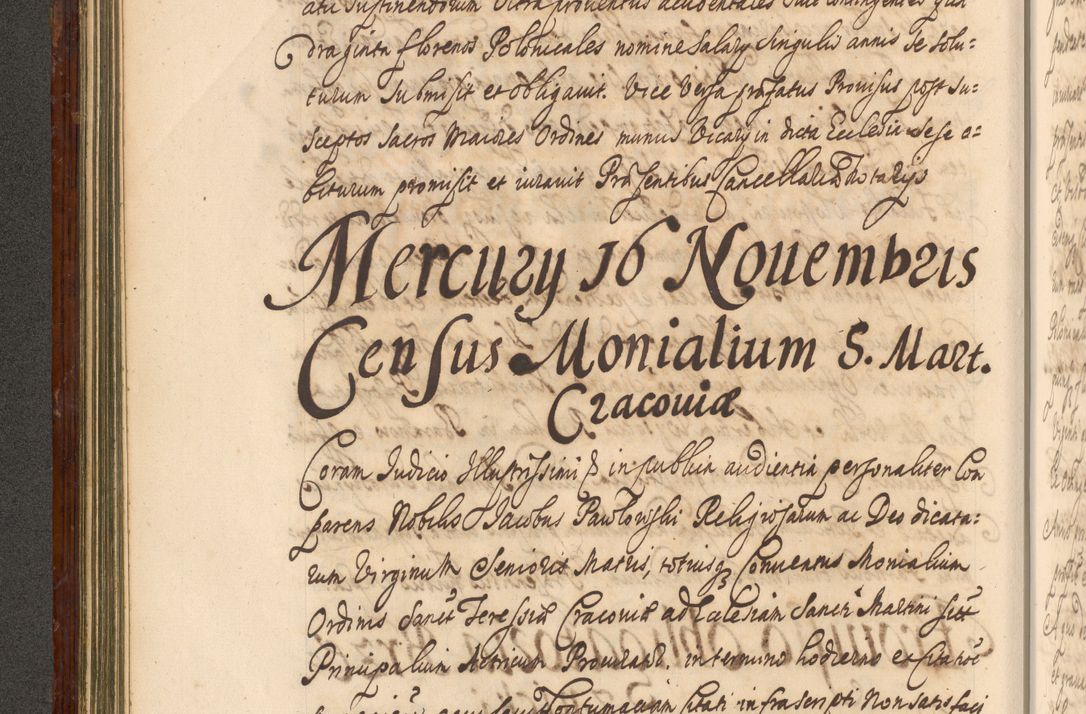 draginta florenos Polonicales nomine Salarÿ Singulis annis se solu=
turum Submisit et obligauit. Vice Versa præfatus Prouisus post su=
sceptos Sacros Maiores Ordines munus Vicarÿ in dicta Ecclesia sese o=
biturum promisit et iurauit Præsentibus Cancellariæ Notarÿs
Mercurÿ 16 Nouembris
Census Monialium S. Mart.
Cracouiæ
Coram Judicio Illustrissimi & in publica audientia personaliter Com
parens Nobilis Jacobus Pawlowski Religiosarum ac Deo dicata=
rum Virginum Senioris Matris, totiusq3 Conuentus Monialium
Ordinis Sanctæ Teressiæ Cracouiæ ad Ecclesiam Sancti Martini sitæ
Principalium Actricum Procurator, in termino hodierno ex Citatioē
Contumaciam Citati infrascripti Non satisfaci